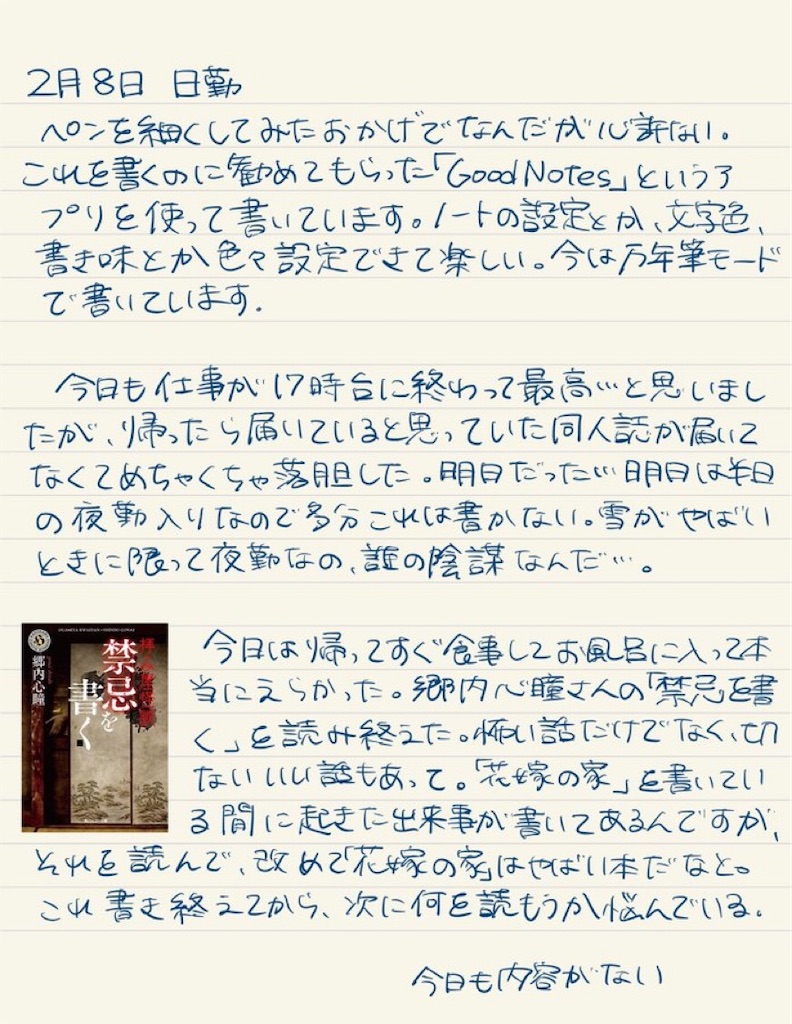 2月8日 日勤
ペンを細くしてみたおかげでなんだか心許ない。
これを書くのに勧めてもらった「GoodNotes」というア
プリを使って書いています。ノートの設定とか、文字色、
書き味とか色々設定できて楽しい。今は万年筆モード
で書いています.
今日も仕事が17時台に終わって最高…と思いまし
たが、帰ったら届いていると思っていた同人誌が届いて
なくてめちゃくちゃ落胆した。明日だった…明日は半日
の夜勤入りなので多分これは書かない。雪がやばい
ときに限って夜勤なの、誰の陰謀なんだ…。
禁忌を
書く
郷内心瞳
今日は帰ってすぐ食事してお風呂に入って本
当にえらかった。郷内心瞳さんの「禁忌を書
く」を読み終えた。怖い話だけでなく、切
ないいい話もあって。「花嫁の家」を書いてい
る間に起きた出来事が書いてあるんですが、
それを読んで、改めて「花嫁の家」はやばい本だなと。
これ書き終えてから、次に何を読もうか悩んでいる.
今日も内容がない